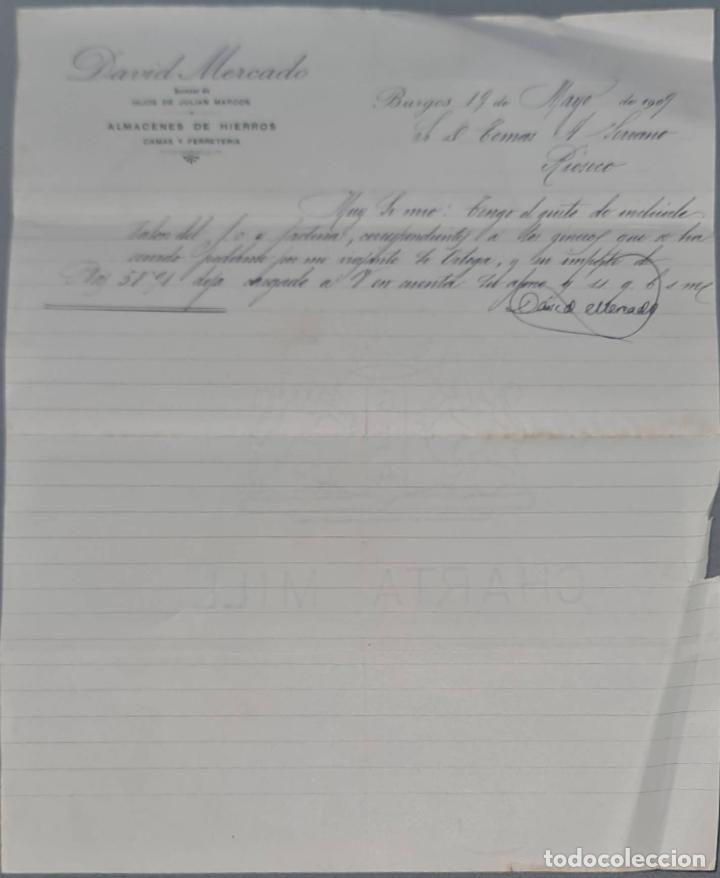 David Mercado
Sucesor de
HIJOS DE JULIAN MARCOS
ALMACENES DE HIERROS
CAMAS Y FERRETERIA
Burgos 19 de Mayo de 1909
Sr D Tomas A Serrano
Rioseco
Muy Sr mio: Tengo el gusto de incluirle
talon del f. c. y factura, correspondientes a los generos que se ha
servido pedirme por mi viajante Sr Ortega, y su importe de
Ptas 58'91 dejo cargado a V en cuenta
David Mercado
CHARTA MILL
todocoleccion.net